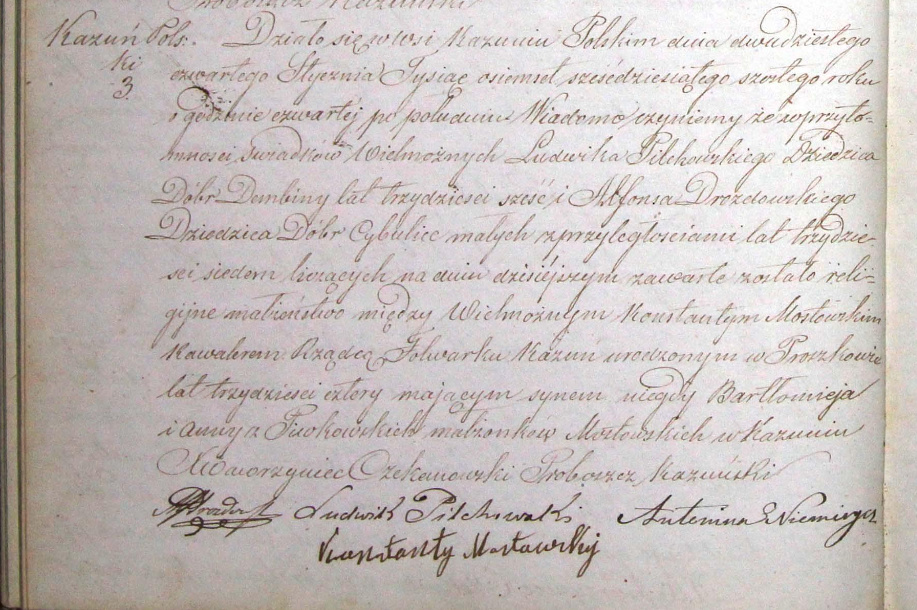 Proboszcz Kazuński
Kazuń Pols:
ki
3.
Działo się w wsi Kazuniu Polskim dnia dwudziestego
czwartego Stycznia Tysiąc osiemset sześćdziesiątego szóstego roku
o godzinie czwartéj po południu Wiadomo czyniemy że w przyto-
mności świadków Wielmożnych Ludwika Pilchowskiego Dziedzica
Dóbr Dembiny lat trzydzieści sześć i Alfonsa Drozdowskiego
Dziedzica Dóbr Cybulice małych z przyległościami lat trzydzie-
ści siedem liczących na dniu dzisiejszym zawarte zostało reli-
gijne małżeństwo między Wielmożnym Konstantym Mostowskim
Kawalerem Rządcą Folwarku Kazuń urodzonym w Proszkowie
lat trzydzieści cztery mającym synem niegdy Bartłomieja
i Anny z małżonków Mostowskich w Kazuniu
X Wawrzyniec Czekanowski Proboszcz Kazuński
Ludwik Pilchowski Antonina Z Niemirycz
Konstanty Mostowski